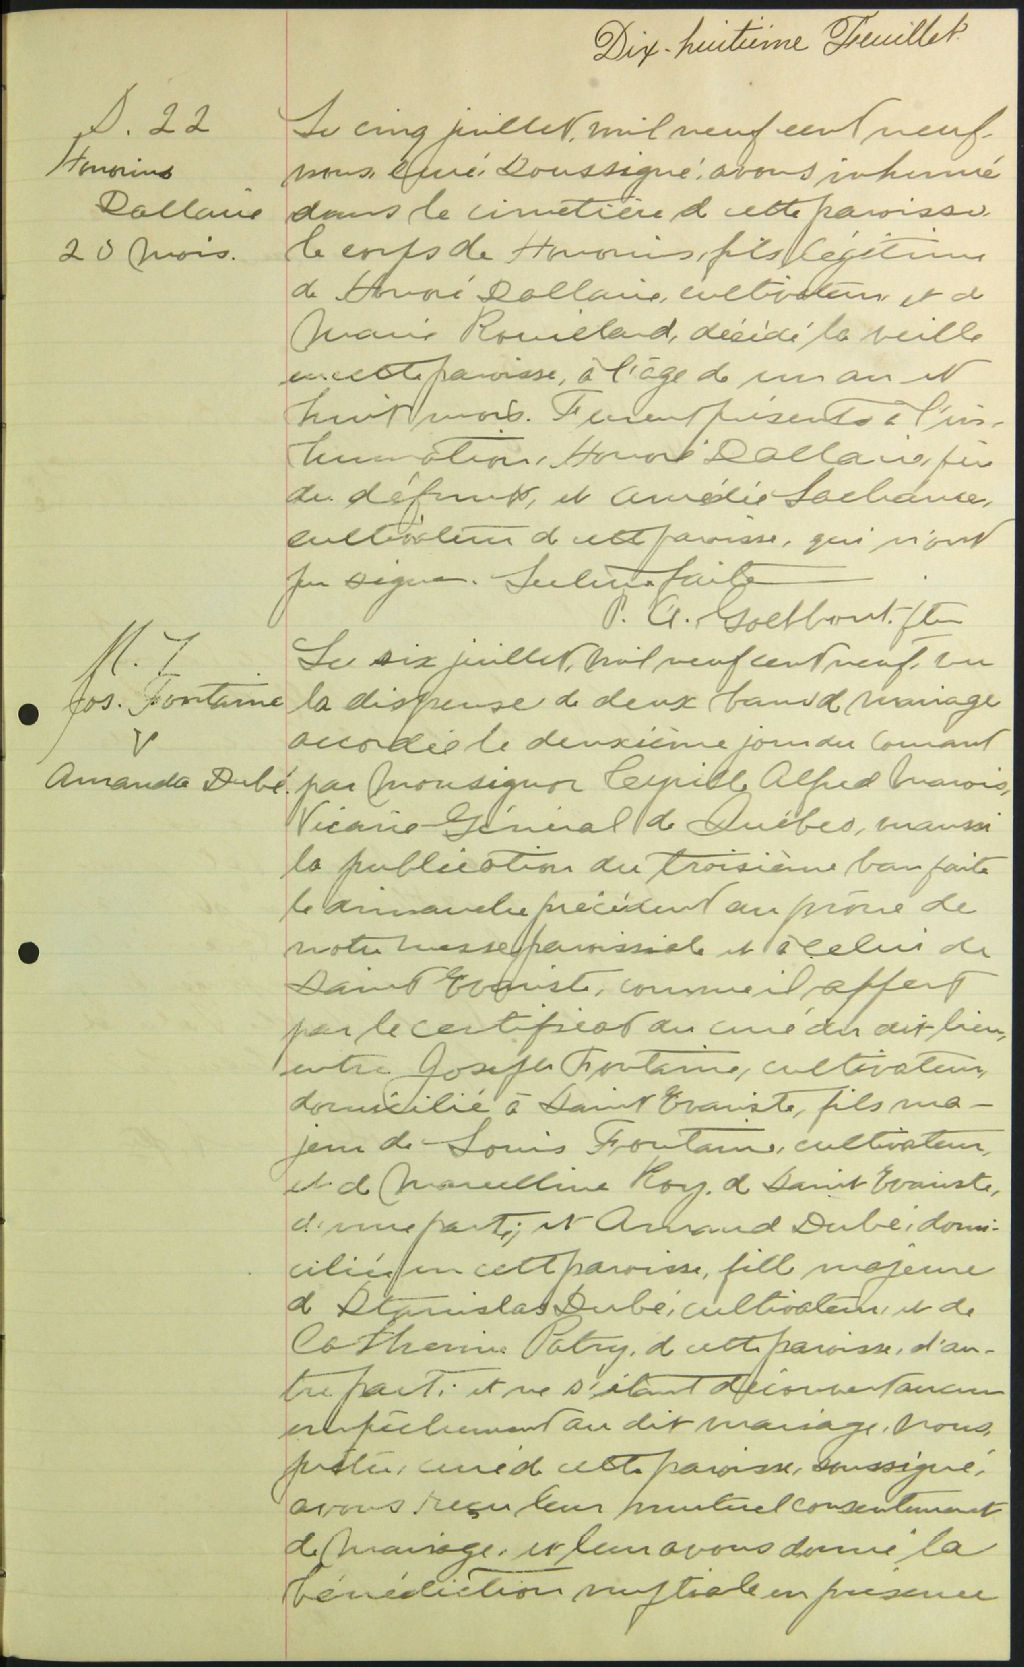 Dix-huitième Feuillet.
S. 22
Honorius
Dallaire
20 mois.
Le cinq juillet, mil neuf cent neuf,
nous, curé, soussigné, avons inhumé
dans le cimetière de cette paroisse,
le corps de Honorius, fils légitime
de Honoré Dallaire, cultivateur et de
Marie Rouillard, décédé la veille
en cette paroisse, à l'âge de un an et
huit mois. Furent présents à l'in-
humation, Honoré Dallaire, père
du défunt, et Amédée Lachance,
cultivateur de cette paroisse, qui n'ont
pu signer. Lecture faite
P. A. Godbout, ptre
M. 7
Jos. Fontaine
&
Amanda Dubé.
Le six juillet, mil neuf cent neuf, vu
la dispense de deux bans de mariage
accordée le deuxième jour du courant
par Monsignor Cyrille Alfred Marois,
Vicaire-Général de Québec, vu aussi
la publication du troisième ban faite
le dimanche précédent au prône de
notre messe paroissiale et à celui de
Saint Evariste, comme il appert
par le certificat du curé du dit lieu,
entre Joseph Fontaine, cultivateur,
domicilié à Saint Evariste, fils ma-
jeur de Louis Fontaine, cultivateur,
et de Marcelline Roy, de Saint Evariste,
d'une part; et Amanda Dubé, domi-
ciliée en cette paroisse, fille majeure
de Stanislas Dubé, cultivateur, et de
Catherine Patry, de cette paroisse, d'au-
tre part; et ne s'étant découvert aucun
empêchement au dit mariage, nous,
prêtre, curé de cette paroisse, soussigné,
avons reçu leur mutuel consentement
de mariage, et leur avons donné la
bénédiction nuptiale en présence